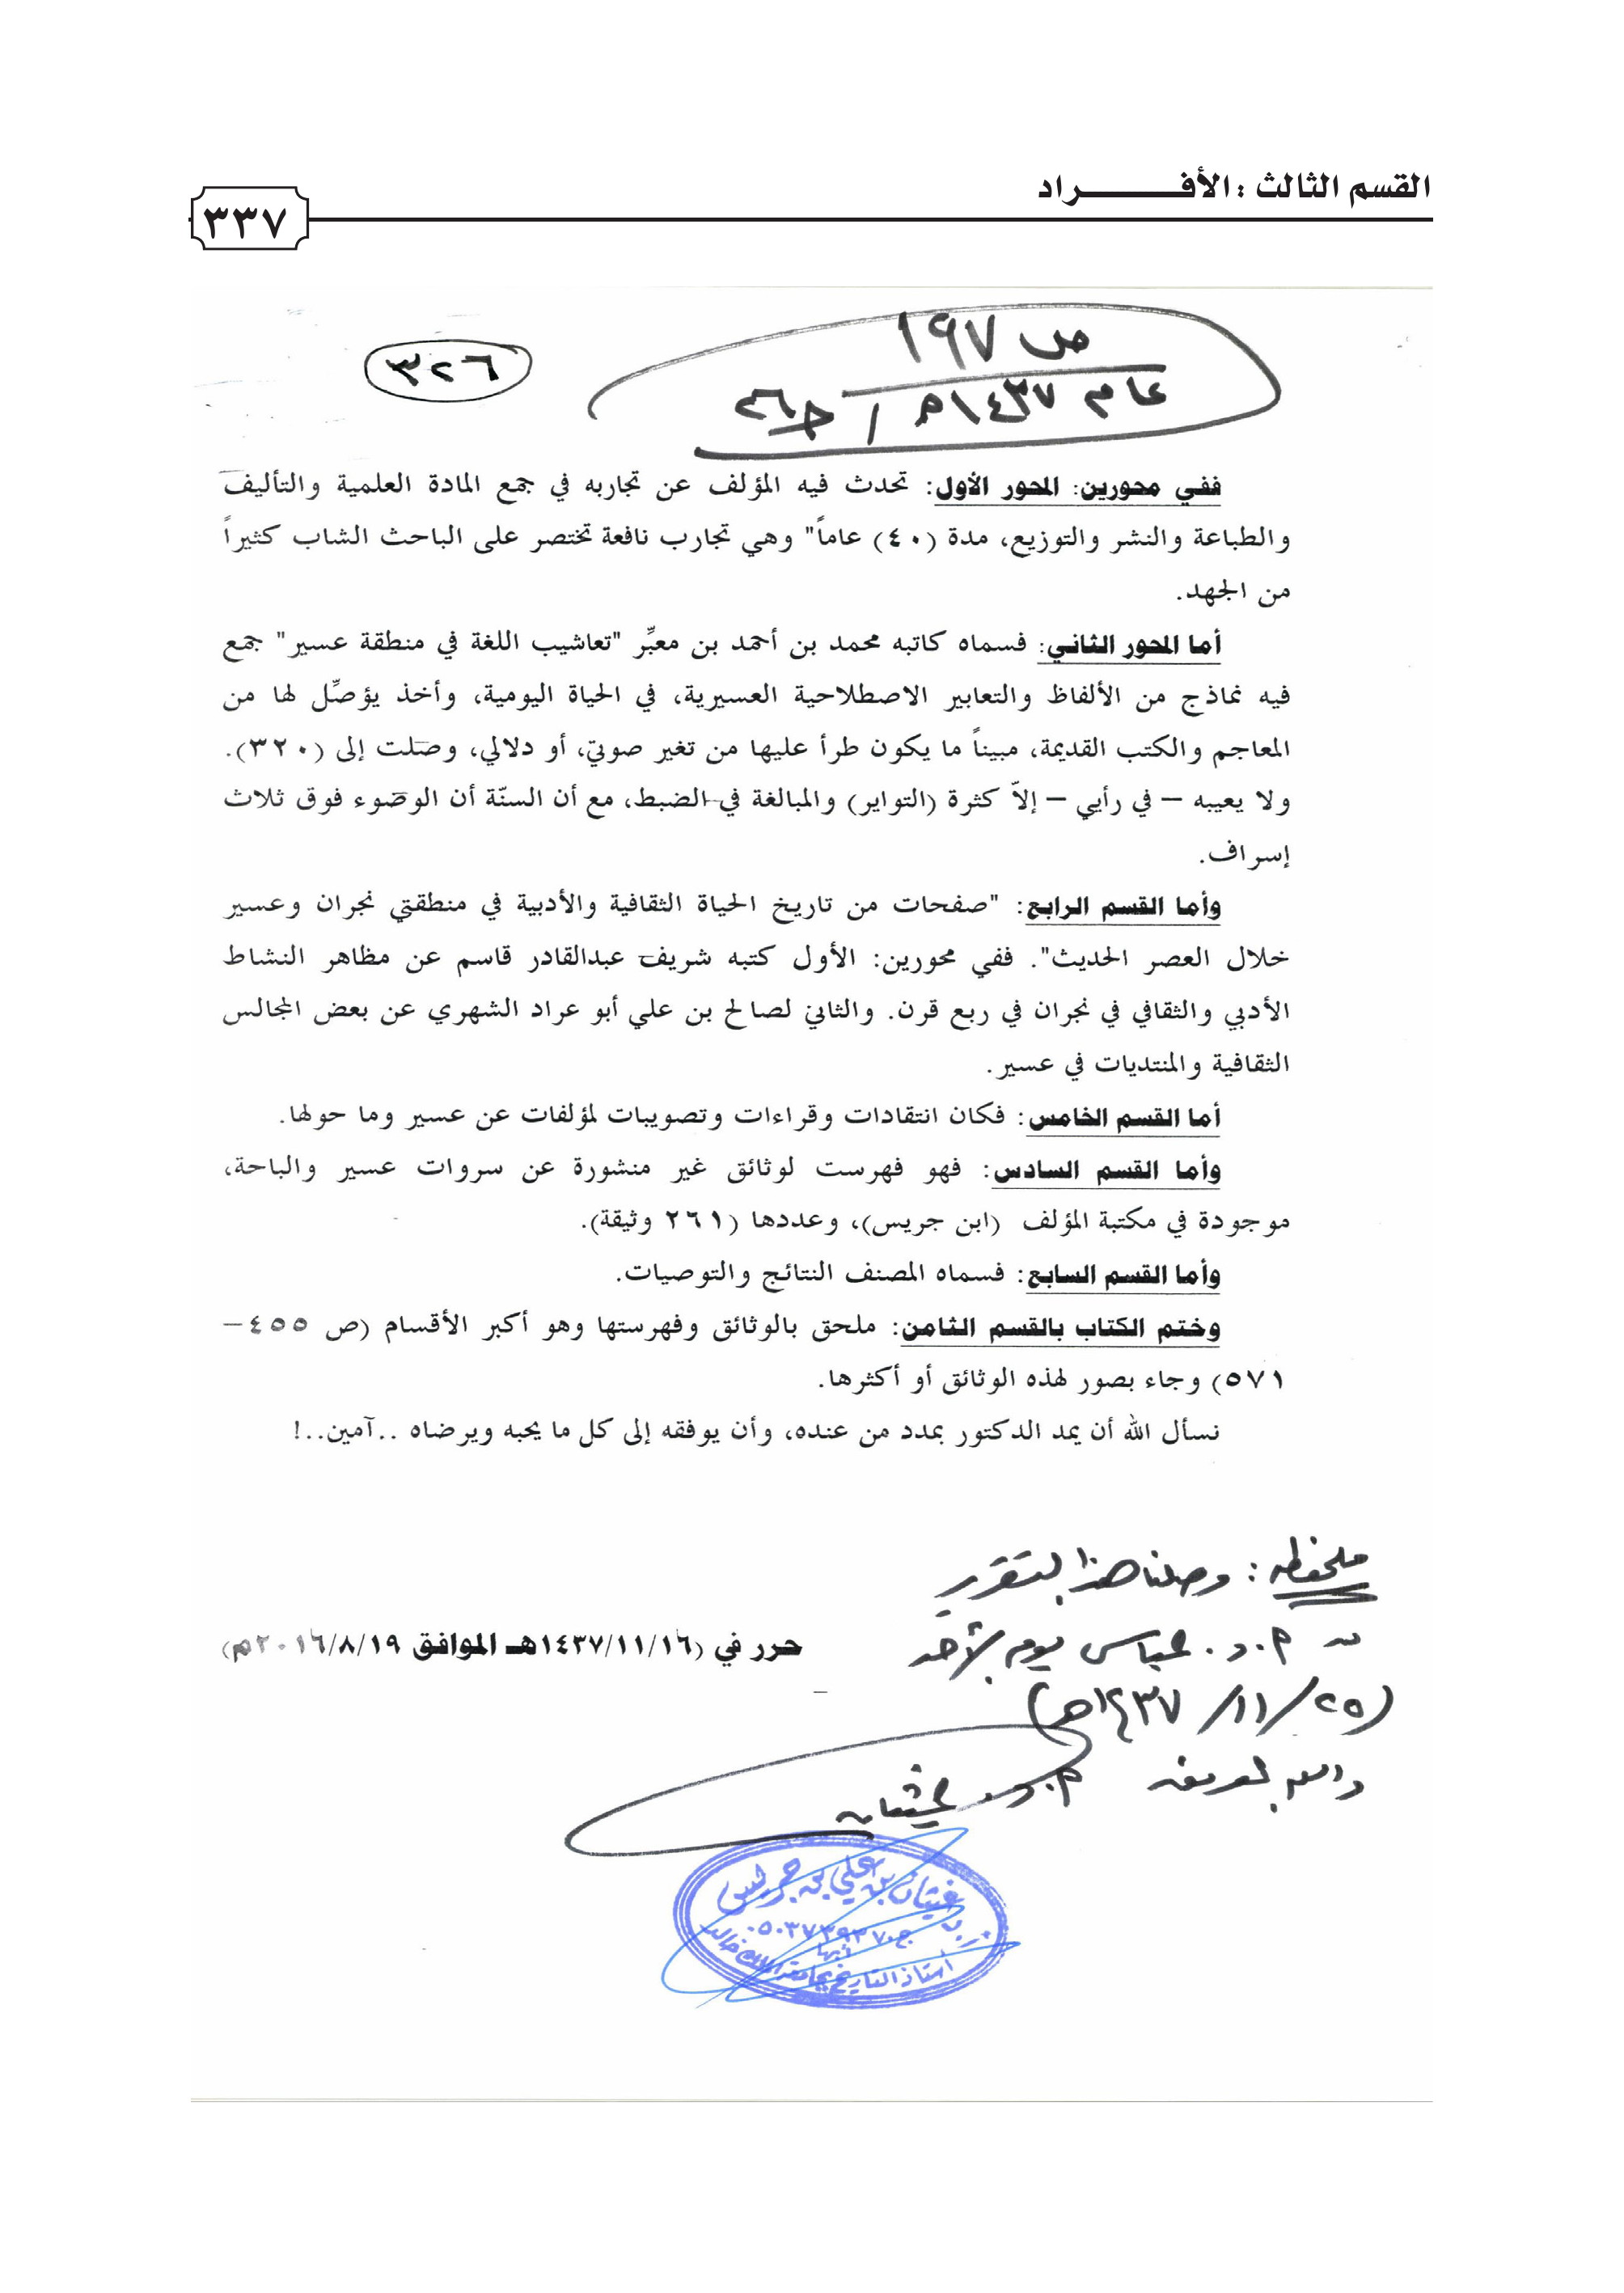 القسم الثالث : الأفـــــــــراد
٣٣٧
ص ١٩٧
عام ١٤٣٧هـ / ج٢٦
٣٢٦
ففي محورين: المحور الأول: تحدث فيه المؤلف عن تجاربه في جمع المادة العلمية والتأليف
والطباعة والنشر والتوزيع، مدة (٤٠) عاماً" وهي تجارب نافعة تختصر على الباحث الشاب كثيراً
من الجهد.
أما المحور الثاني: فسماه كاتبه محمد بن أحمد بن معبِّر "تعاشيب اللغة في منطقة عسير" جمع
فيه نماذج من الألفاظ والتعابير الاصطلاحية العسيرية، في الحياة اليومية، وأخذ يؤصِّل لها من
المعاجم والكتب القديمة، مبيناً ما يكون طرأ عليها من تغير صوتي، أو دلالي، وصلت إلى (٣٢٠).
ولا يعيبه – في رأيي – إلاّ كثرة (التواير) والمبالغة في الضبط، مع أن السنّة أن الوضوء فوق ثلاث
إسراف.
وأما القسم الرابع: "صفحات من تاريخ الحياة الثقافية والأدبية في منطقتي نجران وعسير
خلال العصر الحديث". ففي محورين: الأول كتبه شريف عبدالقادر قاسم عن مظاهر النشاط
الأدبي والثقافي في نجران في ربع قرن. والثاني لصالح بن علي أبو عراد الشهري عن بعض المجالس
الثقافية والمنتديات في عسير.
أما القسم الخامس: فكان انتقادات وقراءات وتصويبات لمؤلفات عن عسير وما حولها.
وأما القسم السادس: فهو فهرست لوثائق غير منشورة عن سروات عسير والباحة،
موجودة في مكتبة المؤلف (ابن جريس)، وعددها (٢٦١ وثيقة).
وأما القسم السابع: فسماه المصنف النتائج والتوصيات.
وختم الكتاب بالقسم الثامن: ملحق بالوثائق وفهرستها وهو أكبر الأقسام (ص ٤٥٥–
٥٧١) وجاء بصور لهذه الوثائق أو أكثرها.
نسأل الله أن يمد الدكتور بمدد من عنده، وأن يوفقه إلى كل ما يحبه ويرضاه ..آمين..!
ملحوظة : وصلنا هذا التقرير
من م.د. عباس يوم الأحد
(٢٥/ ١١/ ١٤٣٧هـ)
والله الموفق
حرر في (١٤٣٧/١١/١٦هـ الموافق ٢٠١٦/٨/١٩م)
غيثان بن علي بن جريس
ج.٠٥٠٣٧٣٩٣٧٠
أبها
أستاذ التاريخ بجامعة الملك خالد